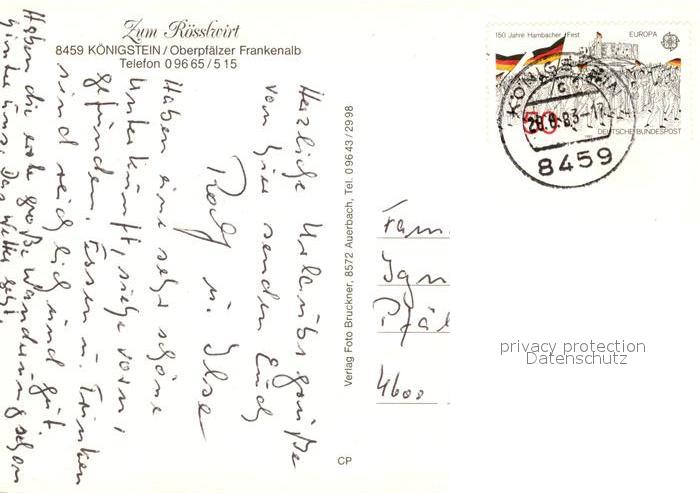 Zum Rösslwirt
8459 KÖNIGSTEIN / Oberpfälzer Frankenalb
Telefon 0 96 65 / 5 15
Herzliche Urlaubsgrüße
von hier senden Euch
Rolf u. Ilse
Haben eine sehr schöne
Unterkunft, siehe vorn,
gefunden. Essen u. Trinken
sind reichlich und gut.
Haben die erste große Wanderung schon
hinter uns. Das Wetter geht.
Verlag Foto Bruckner, 8572 Auerbach, Tel. 0 96 43 / 29 98
CP
150 Jahre Hambacher Fest
EUROPA
50
DEUTSCHE BUNDESPOST
KÖNIGSTEIN
c
28.6.83-17
8459
Fam.
Ign
Pfäl
4600
privacy protection
Datenschutz